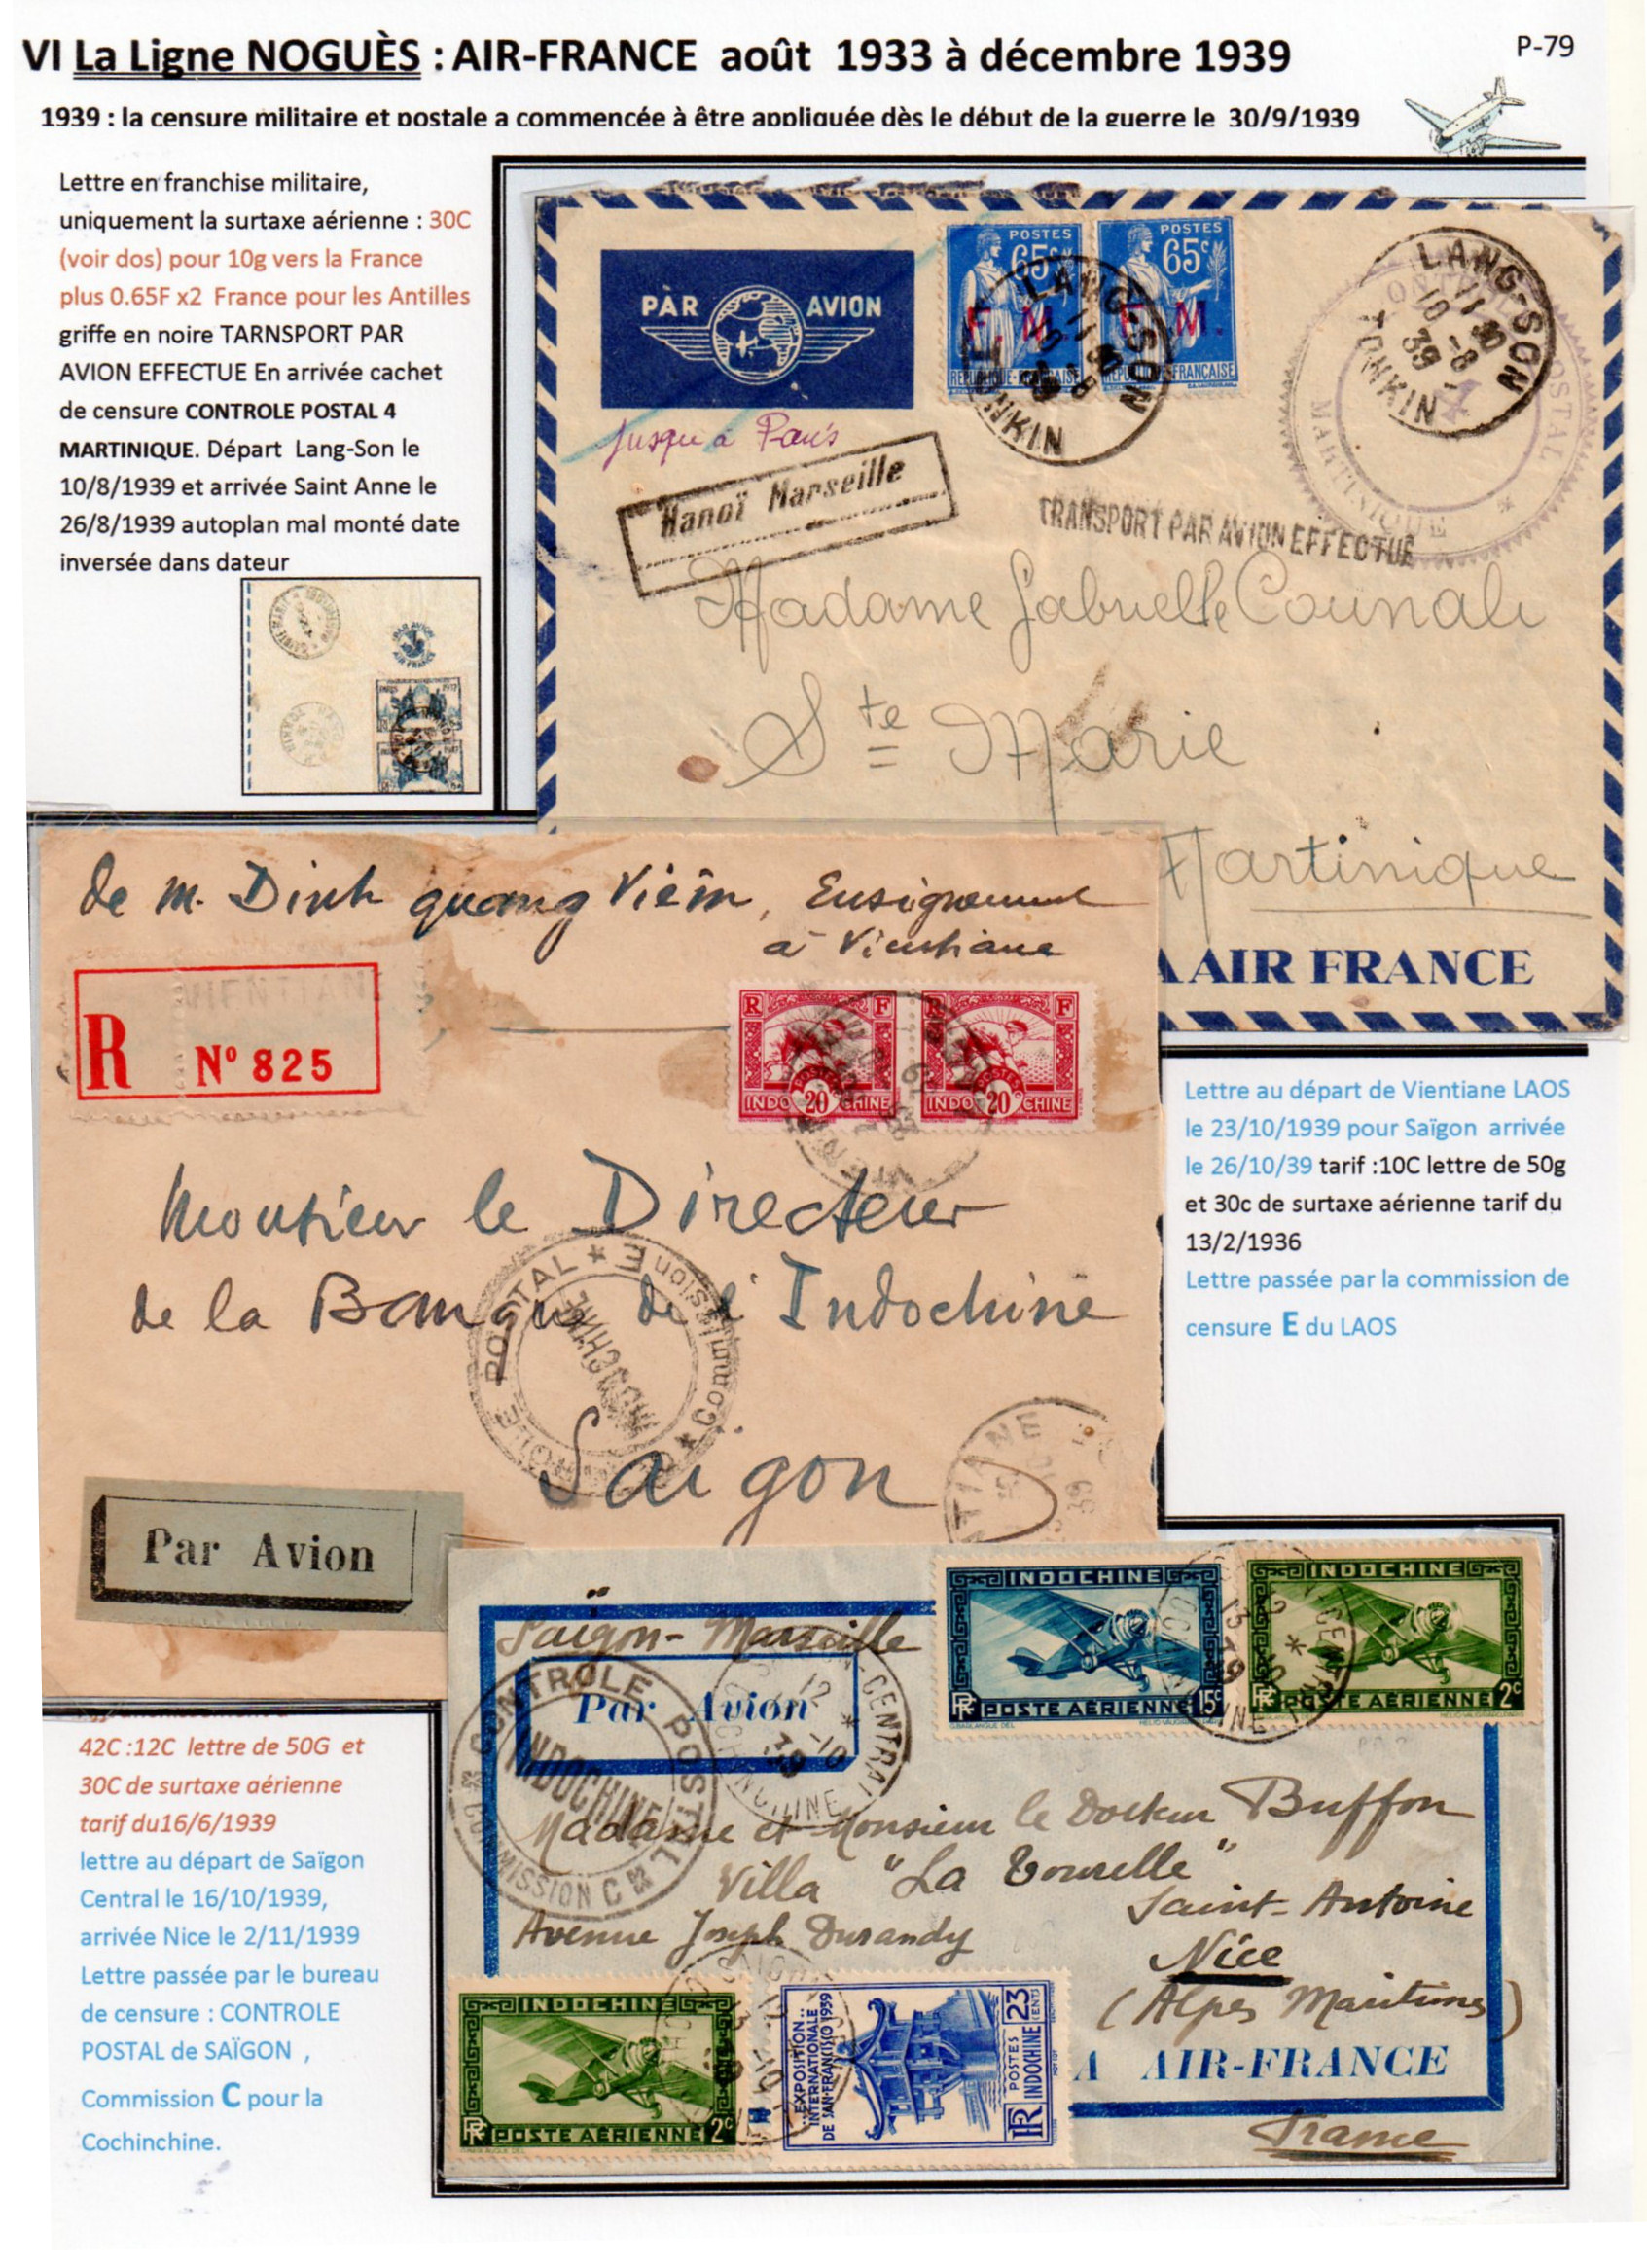 VI La Ligne NOGUÈS : AIR-FRANCE août 1933 à décembre 1939
P-79
1939 : la censure militaire et postale a commencée à être appliquée dès le début de la guerre le 30/9/1939
Lettre en franchise militaire,
uniquement la surtaxe aérienne : 30C
(voir dos) pour 10g vers la France
plus 0.65F x2 France pour les Antilles
griffe en noire TARNSPORT PAR
AVION EFFECTUE En arrivée cachet
de censure CONTROLE POSTAL 4
MARTINIQUE. Départ Lang-Son le
10/8/1939 et arrivée Saint Anne le
26/8/1939 autoplan mal monté date
inversée dans dateur
PAR AVION
POSTES 65c F. M.
RÉPUBLIQUE FRANÇAISE
POSTES 65c F. M.
RÉPUBLIQUE FRANÇAISE
LANG-SON
TONKIN
LANG-SON
10-8
39
TONKIN
CONTROLE POSTAL
4
MARTINIQUE
Jusqu'à Paris
Hanoï Marseille
TRANSPORT PAR AVION EFFECTUÉ
Madame Gabrielle
Ste Marie
Martinique
A AIR FRANCE
de M. Dinh quang Viêm, Enseignement
à Vientiane
R N° 825
RF POSTES INDO 20 CHINE
RF POSTES INDO 20 CHINE
Monsieur le Directeur
de la Banque de l'Indochine
Saigon
CONTROLE POSTAL * Commission E *
INDOCHINE
Par Avion
Lettre au départ de Vientiane LAOS
le 23/10/1939 pour Saïgon arrivée
le 26/10/39 tarif :10C lettre de 50g
et 30c de surtaxe aérienne tarif du
13/2/1936
Lettre passée par la commission de
censure E du LAOS
42C :12C lettre de 50G et
30C de surtaxe aérienne
tarif du16/6/1939
lettre au départ de Saïgon
Central le 16/10/1939,
arrivée Nice le 2/11/1939
Lettre passée par le bureau
de censure : CONTROLE
POSTAL de SAÏGON ,
Commission C pour la
Cochinchine.
Saïgon - Marseille
Par Avion
INDOCHINE
RF POSTE AÉRIENNE 15c
INDOCHINE
RF POSTE AÉRIENNE 2c
CONTROLE POSTAL
INDOCHINE
COMMISSION C
Madame et Monsieur le Docteur Buffon
Villa "La Tourelle"
Saint-Antoine
Avenue Joseph Durandy
Nice
(Alpes Maritimes)
INDOCHINE
RF POSTE AÉRIENNE 2c
EXPOSITION
INTERNATIONALE
DE SAN-FRANCISCO 1939
RF POSTES INDOCHINE 23 CENTS
A AIR-FRANCE
France